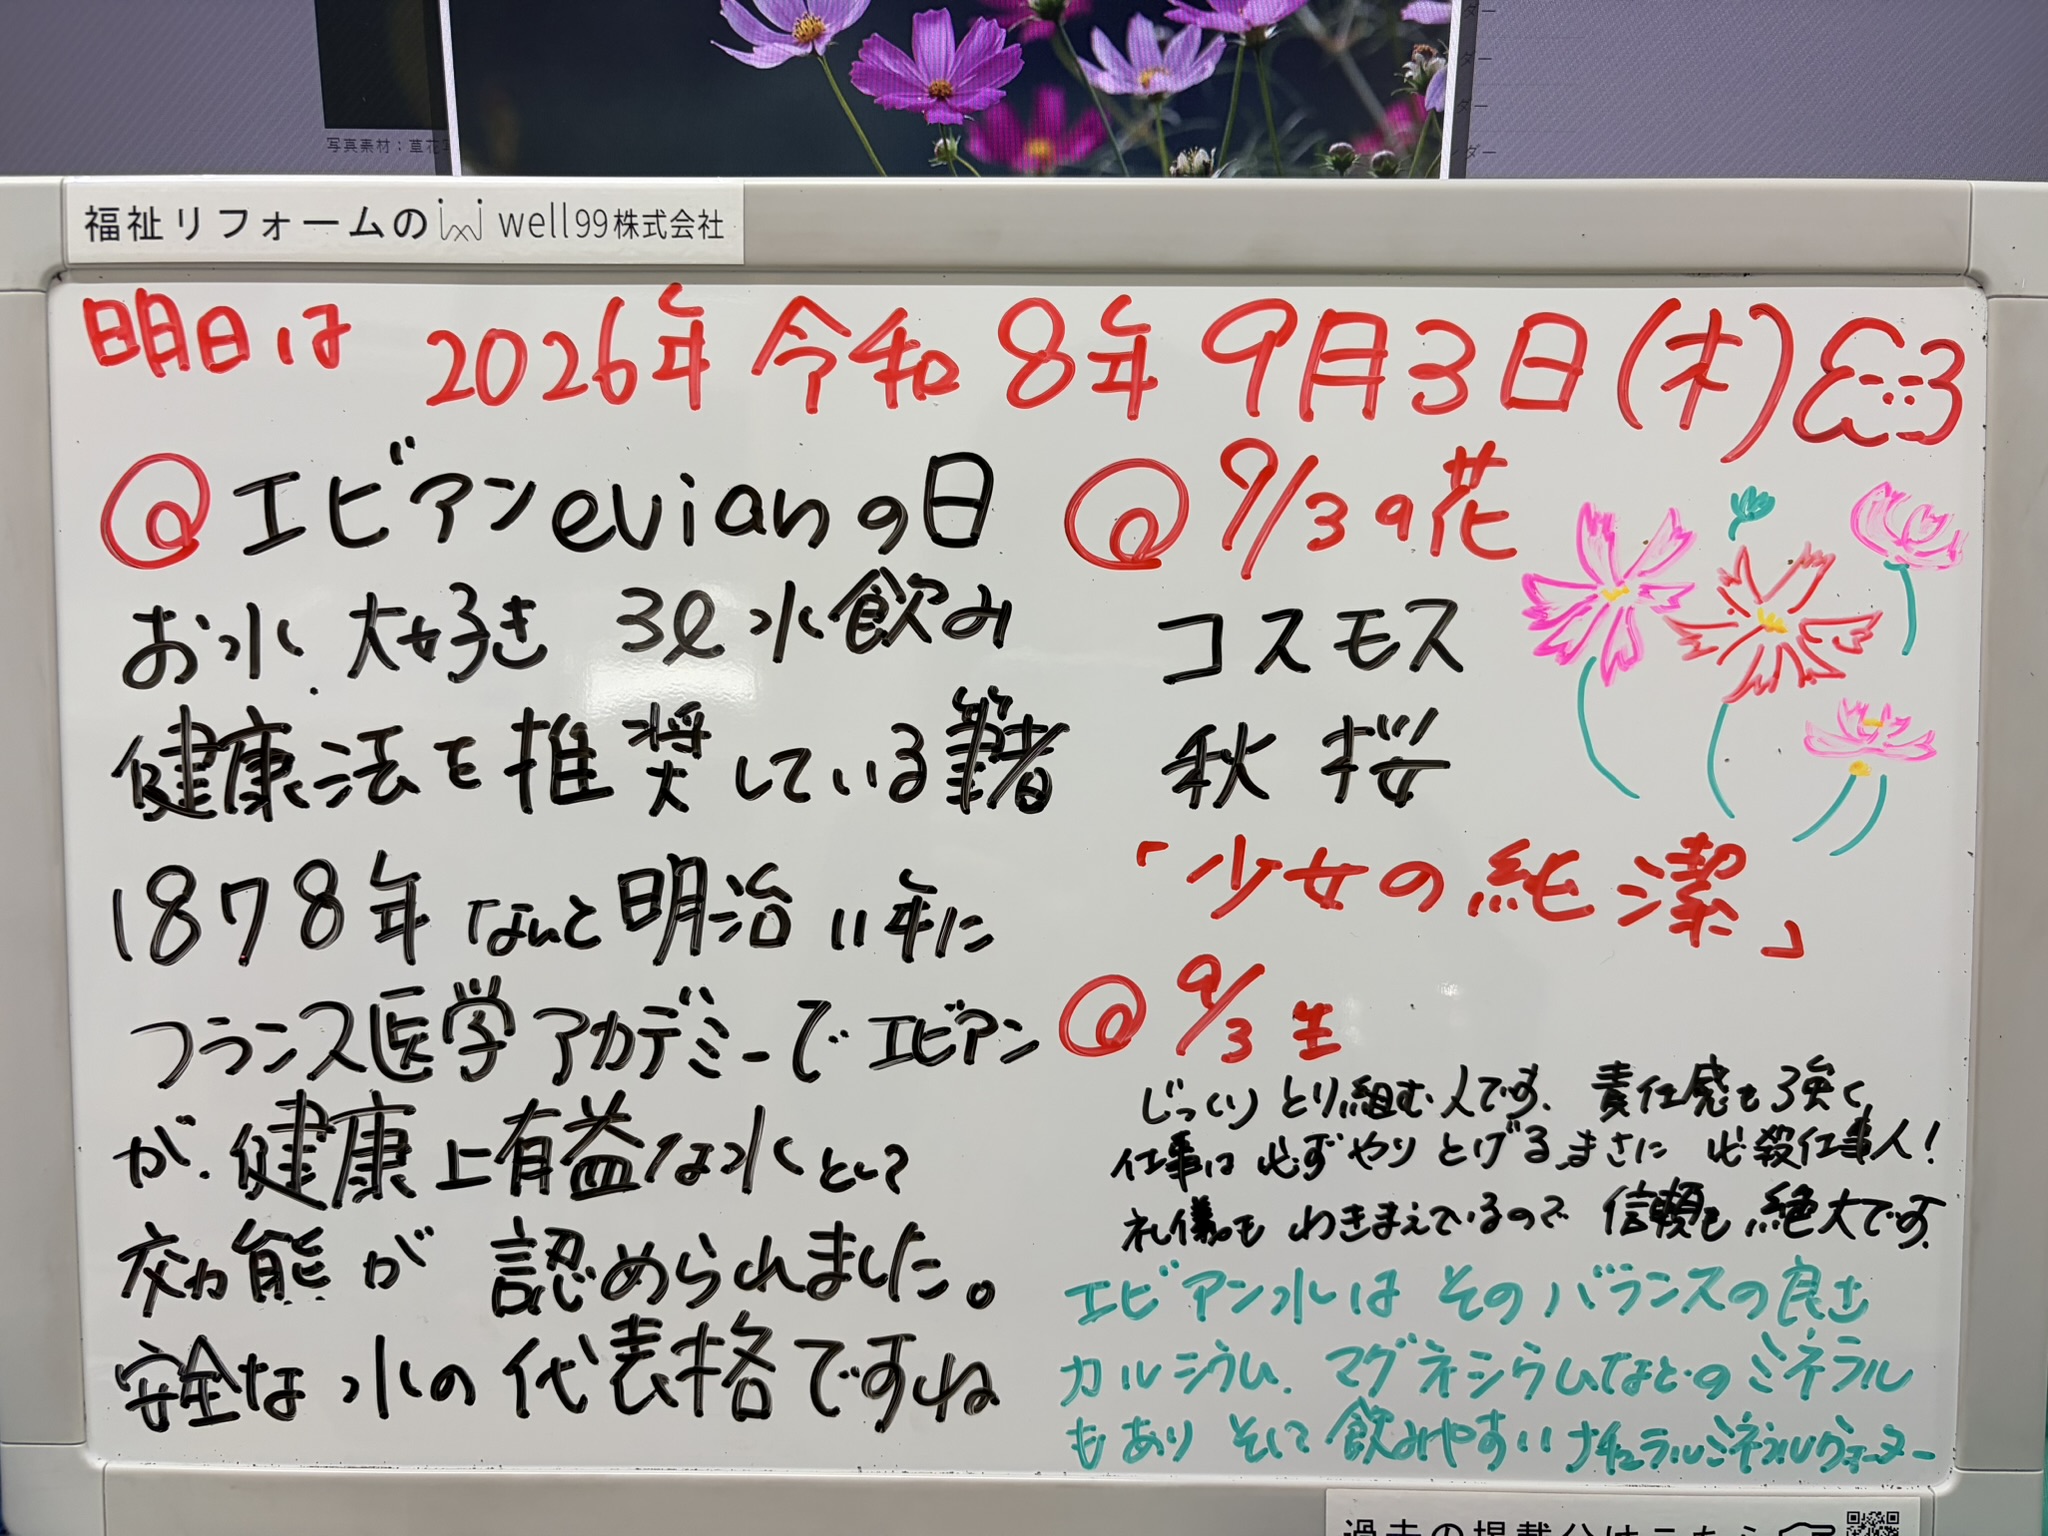 写真素材：草花
ダー
ダー
ダー
ダー
福祉リフォームの well99株式会社
明日は 2026年 令和 8年 9月3日(木)
エビアンevianの日
お水 大好き 3ℓ水飲み
健康法を推奨している筆者
1878年 なんと明治11年に
フランス医学アカデミーでエビアン
が、健康上有益な水として
効能が 認められました。
安全な水の代表格ですね
9/3の花
コスモス
秋桜
「少女の純潔」
9/3生
じっくりとり組む人です、責任感も強く、
仕事は必ずやりとげる、まさに 必殺仕事人!
礼儀もわきまえているので 信頼も絶大です。
エビアン水は そのバランスの良さ
カルシウム、マグネシウムなどのミネラル
もあり そして飲みやすいナチュラルミネラルウォーター
過去の掲載分はこちら